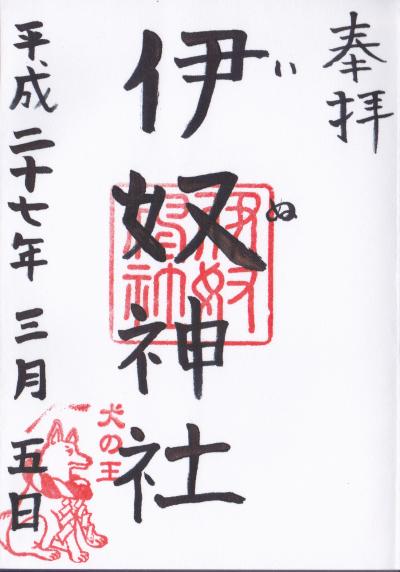 奉拝
伊奴神社
いぬ
伊奴神社
犬の王
平成二十七年三月五日